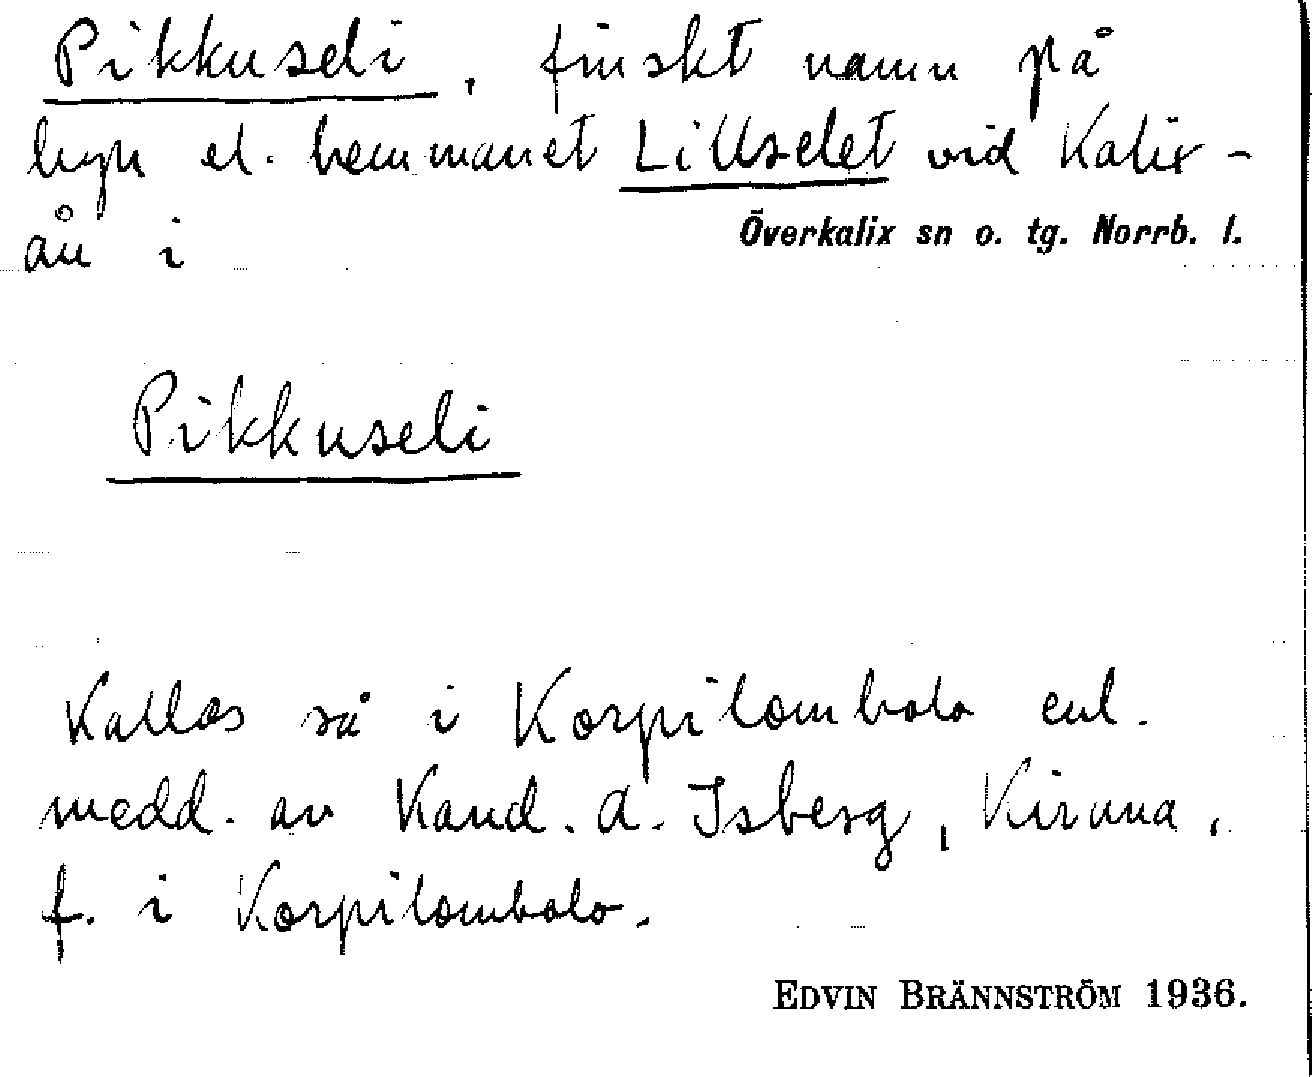 Pikkuseli, finskt namn på
byn el. hemmanet Lillselet vid Kalix-
ån i Överkalix sn o. tg. Norrb. l.
Pikkuseli
Kallas så i Korpilombolo enl.
medd. av Kand. A. Isberg, Kiruna,
f. i Korpilombolo.
EDVIN BRÄNNSTRÖM 1936.